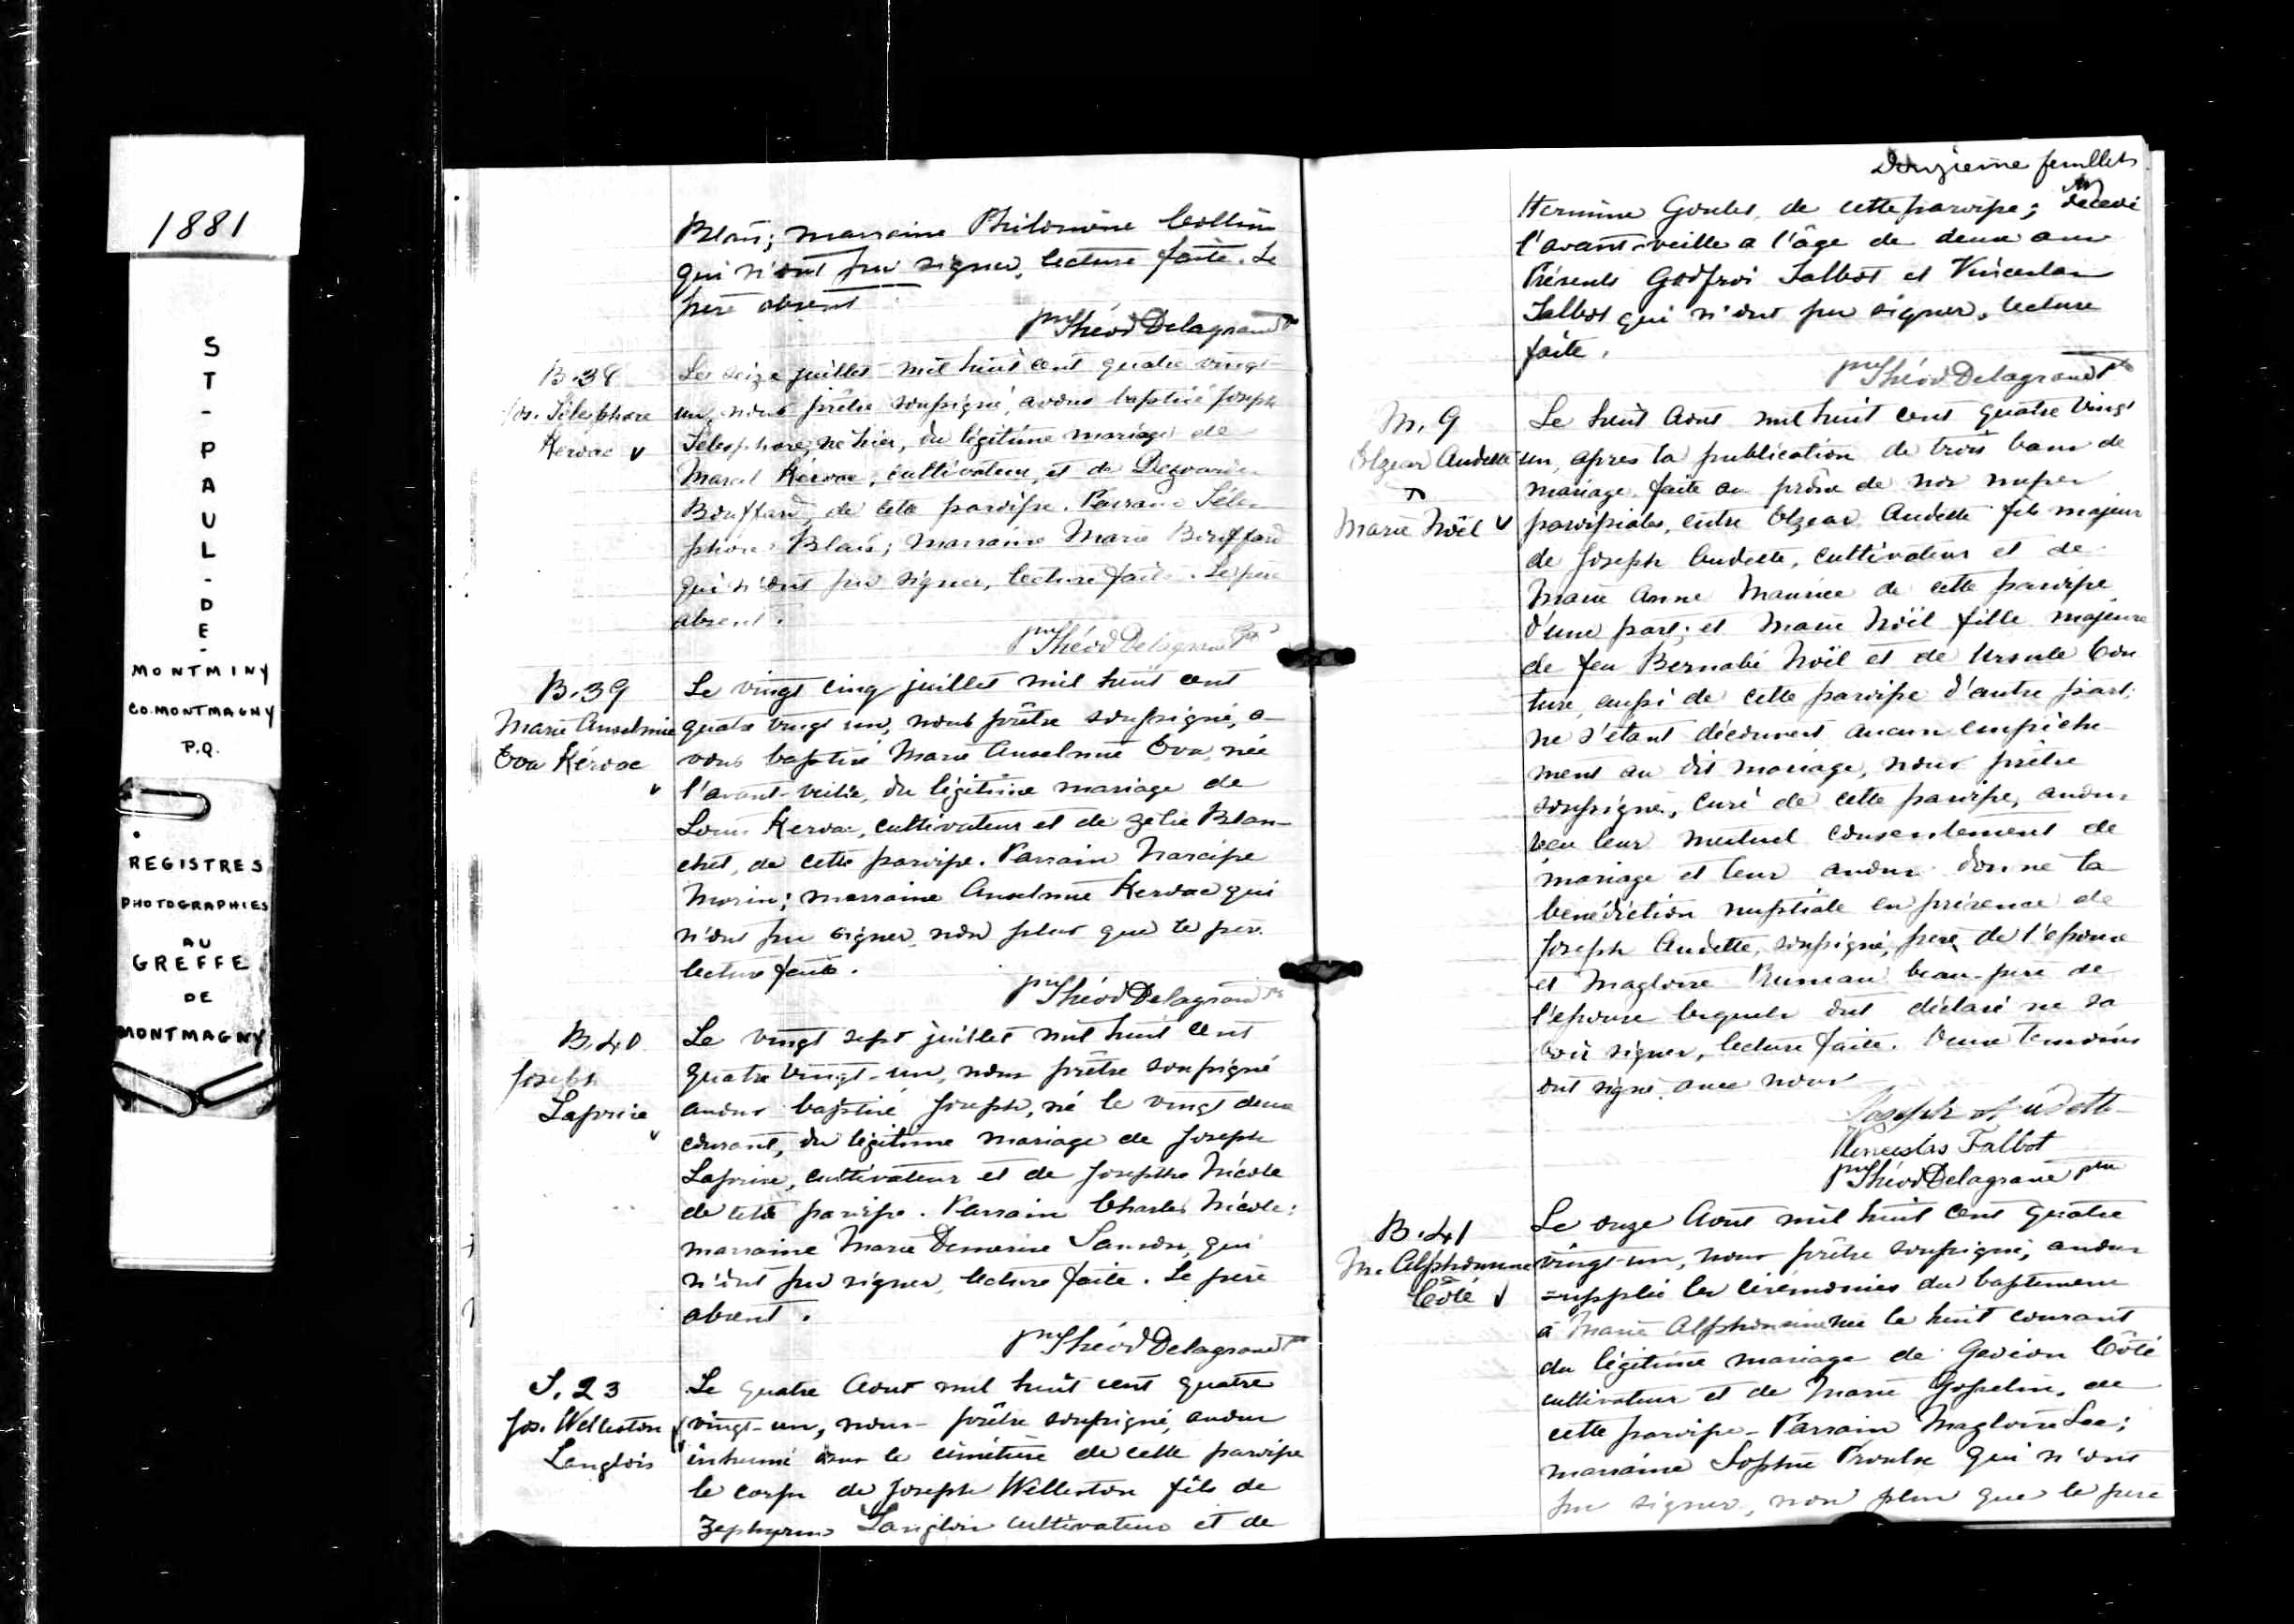 1881
ST-PAUL-DE-
MONTMINY
CO. MONTMAGNY
P.Q.
REGISTRES
PHOTOGRAPHIES
AU
GREFFE
DE
MONTMAGNY
Blais; marraine Philomène Collin
qui n'ont pu signer, lecture faite. Le
père absent
Théod Delagrave
B.38
Jos. Télesphore
Kérvac v
Le seize juillet mil huit cent quatre vingt
un, nous prêtre soussigné, avons baptisé Joseph
Télesphore, né hier, du légitime mariage de
Marcel Kérvac, cultivateur, et de
Bouffard, de cette paroisse. Parrain Téles
phore Blais; marraine Marie Bouffard
qui n'ont pu signer, lecture faite. Le père
absent.
Théod Delagrave
B.39
Marie Anselmie
Eva Kérvac
v
Le vingt cinq juillet mil huit cent
quatre vingt un, nous prêtre soussigné, a-
vons baptisé Marie Anselmie Eva, née
l'avant-veille, du légitime mariage de
Louis Kervac, cultivateur et de Zelie Blan-
chet, de cette paroisse. Parrain Narcisse
Morin; marraine Anselmie Kervac qui
n'ont pu signer, non plus que le père.
lecture faite.
Théod Delagrave
B.40
Joseph
Laprise
v
Le vingt sept juillet mil huit cent
quatre vingt-un, nous prêtre soussigné
avons baptisé Joseph, né le vingt deux
courant, du légitime mariage de Joseph
Laprise, cultivateur et de Josephte Nicole
de cette paroisse. Parrain Charles Nicole;
marraine Marie Demerise Samson, qui
n'ont pu signer, lecture faite. Le père
absent.
Théod Delagrave
S.23
Jos. Welleston
Langlois
Le quatre Aout mil huit cent quatre
vingt-un, nous prêtre soussigné, avons
inhumé dans le cimetière de cette paroisse
le corps de Joseph Welleston fils de
Zephyrin Langlois cultivateur et de
Douzieme feuillet
Hermine Goulet, de cette paroisse; décédé
l'avant-veille a l'âge de deux ans
Présents Godfroi Talbot et Vinceslas
Talbot qui n'ont pu signer, lecture
faite.
Théod. Delagrave
M.9
Elzear Audette
Marie Noël v
Le huit Aout mil huit cent quatre vingt
un, apres la publication de trois bans de
mariage faite au prône de nos messes
paroissiales, entre Elzear Audette fils majeur
de Joseph Audette, cultivateur et de
Marie Anne Maurice de cette paroisse
d'une part; et Marie Noël fille majeure
de feu Bernabé Noël et de Ursule Cou
ture, aussi de cette paroisse d'autre part.
ne s'étant découvert aucun empêche
ment au dit mariage, nous prêtre
soussigné, curé de cette paroisse, avons
reçu leur mutuel consentement de
mariage et leur avons donné la
benédiction nuptiale en présence de
Joseph Audette, soussigné, père de l'epoux
et Magloire Bruneau beau-père de
l'epouse lesquels ont déclaré ne sa
voir signer, lecture faite. Deux temoins
ont signé avec nous
Joseph Audette
Venceslas Talbot
Théod Delagrave ptre
B.41
M. Alphonsine
Côté v
Le onze Aout mil huit cent quatre
vingt-un, nous prêtre soussigné, avons
suppléé les cérémonies du baptememe
à Marie Alphonsine née le huit courant
du légitime mariage de Gedeon Côté
cultivateur et de Marie Gosselin, de
cette paroisse - Parrain Magloire Lee;
marraine Sophie Proulx qui n'ont
pu signer, non plus que le père